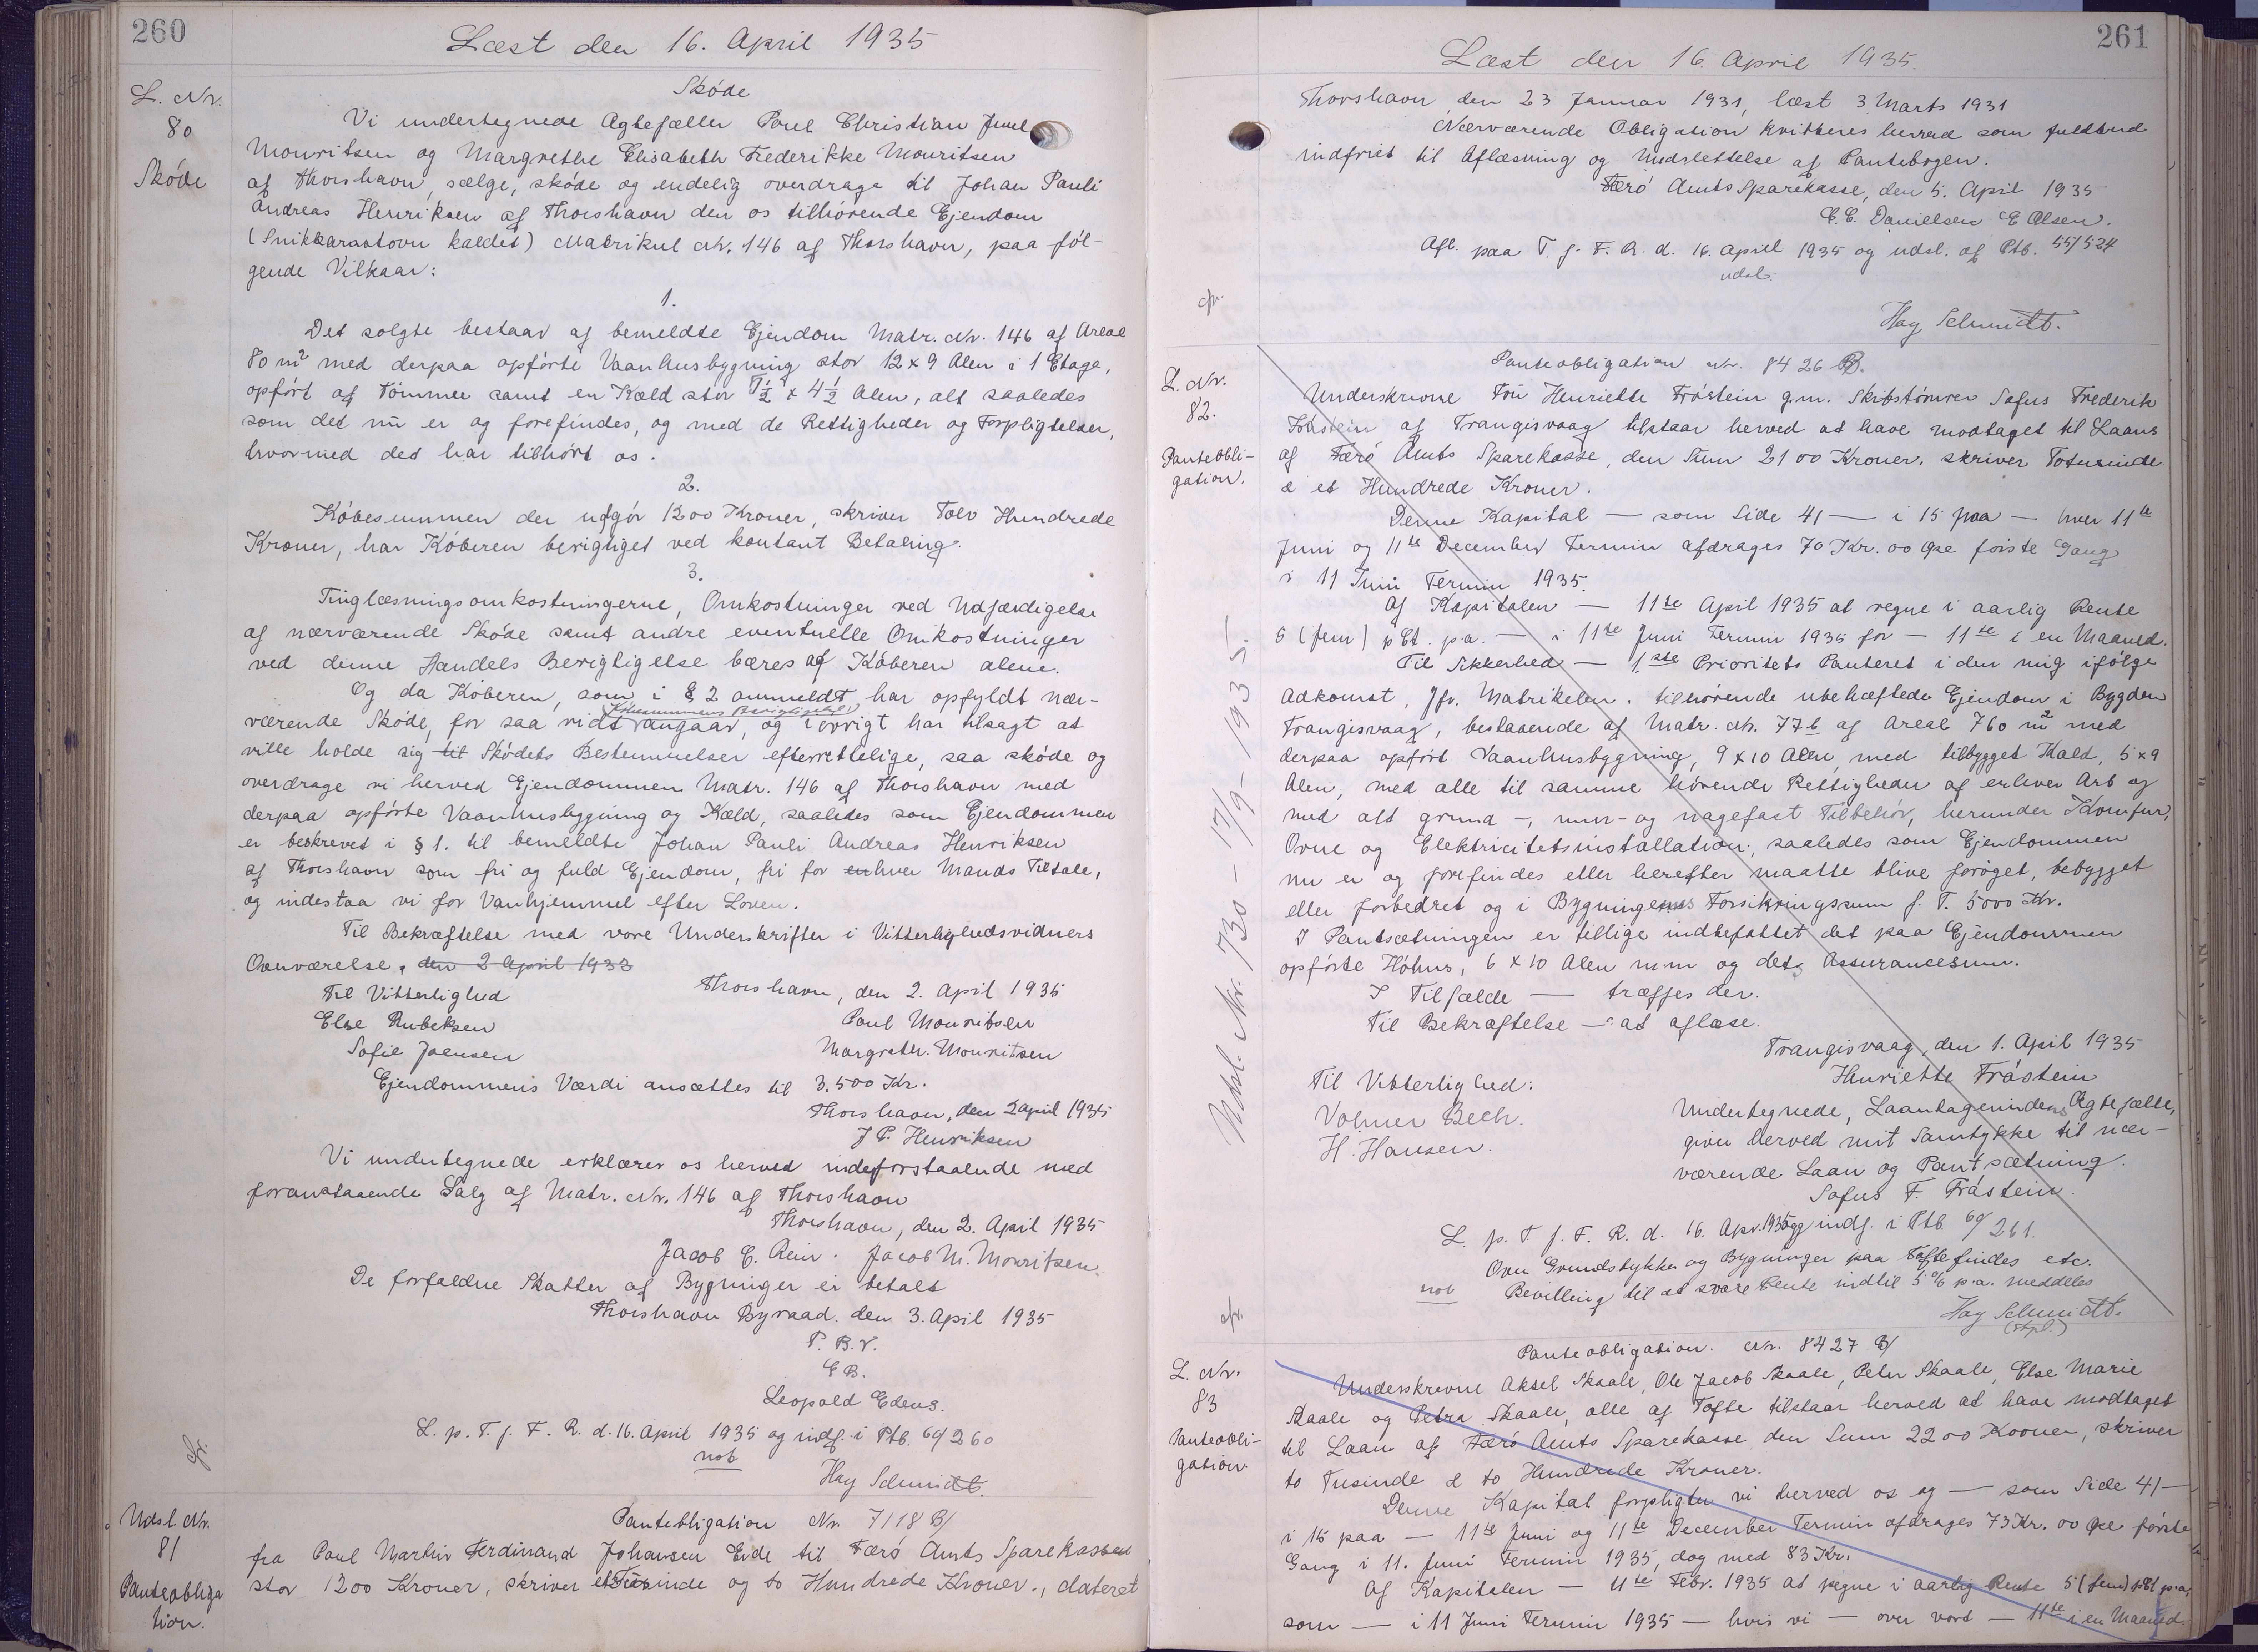 260
Læst den 16. April 1935
L. Nr.
80
Skøde
Skøde
Vi undertegnede Agtefæller Poul Christian Juul
Mouritsen og Margrethe Elisabeth Frederikke Mouritsen
af Thorshavn, sælge, skøde og endelig overdrage til Johan Pauli
Andreas Henriksen af Thorshavn den os tilhørende Ejendom
(Snikkarastovu kaldet) Matrikul Nr. 146 af Thorshavn, paa føl-
gende Vilkaar:
1.
Det solgte bestaar af bemeldte Ejendom Matr. Nr. 146 af Areal
80 m² med derpaa opførte Vaanhusbygning stor 12 x 9 Alen i 1 Etage,
opført af Tømmer samt en Kæld stor 7½ x 4½ Alen, alt saaledes
som det nu er og forefindes, og med de Rettigheder og Forpligtelser,
hvormed det har tilhørt os.
2.
Købesummen der udgør 1200 Kroner, skriver Tolv Hundrede
Kroner, har Køberen berigtiget ved kontant Betaling.
3.
Tinglæsningsomkostningerne, Omkostninger ved Udfærdigelse
af nærværende Skøde samt andre eventuelle Omkostninger
ved denne Handels Berigtigelse bæres af Køberen alene.
Og da Køberen, som i § 2 anmeldt har opfyldt nær-
Købesummens Berigtigelse
værende Skøde, for saa vidt angaar, og i øvrigt har tilsagt at
ville holde sig til Skødets Bestemmelser efterrettelige, saa skøde og
overdrage vi herved Ejendommen Matr. 146 af Thorshavn med
derpaa opførte Vaanhusbygning og Kæld, saaledes som Ejendommen
er beskrevet i § 1. til bemeldte Johan Pauli Andreas Henriksen
af Thorshavn som fri og fuld Ejendom, fri for enhver Mands Tiltale,
og indestaa vi for Vanhjemmel efter Loven.
Til Bekræftelse med vore Underskrifter i Vitterlighedsvidners
Overværelse, den 2 April 1933
Thorshavn, den 2. April 1935
Til Vitterlighed
Else Rubeksen
Poul Mouritsen
Sofie Joensen
Margrethe Mouritsen
Ejendommens Værdi ansættes til 3.500 Kr.
Thorshavn, den 2 april 1935
J P. Henriksen
Vi undertegnede erklærer os herved indeforstaaende med
foranstaaende Salg af Matr. Nr. 146 af Thorshavn
Thorshavn, den 2. April 1935
Jacob E. Rein. Jacob M. Mouritsen.
De forfaldne Skatter af Bygninger er betalt
Thorshavn Byraad. den 3. April 1935
P. B. V.
E B.
Leopold Edens.
L. p. T. f. F. R. d. 16. April 1935 og indf. i Ptb. 60/260
not
Hay Schmidt.
Udsl. Nr.
81
Panteobliga
tion.
Panteobligation Nr. 7118 B/
fra Poul Martin Ferdinand Johansen Eide til Færø Amts Sparekasse
stor 1200 Kroner, skriver et Tusinde og to Hundrede Kroner., dateret
261
Læst den 16. April 1935.
Thorshavn den 23 Januar 1931, læst 3 Marts 1931
Nærværende Obligation kvitteres herved som fuldtud
indfriet til Aflæsning og Udslettelse af Pantebogen.
Færø Amts Sparekasse, den 5. April 1935
C. C. Danielsen E Olsen.
Afl. paa T. f. F. R. d. 16. April 1935 og udsl. af Ptb. 55/524
udsl.
Hay Schmidt.
L. Nr.
82.
Panteobli-
gation.
Udsl. Nr. 730 - 17/9 - 1935.
Panteobligation Nr. 8426 B.
Underskrevne Fru Henriette Tróstein g.m. Skibstømrer Sofus Frederik
Tróstein af Trangisvaag tilstaar herved at have modtaget til Laans
af Færø Amts Sparekasse, den Sum 2100 Kroner, skriver Totusinde
& et Hundrede Kroner.
Denne Kapital — som Side 41 — i 15 paa — hver 11te
Juni og 11te December Termin afdrages 70 Kr. 00 Øre første Gang
i 11 Juni Termin 1935.
Af Kapitalen — 11te April 1935 at regne i aarlig Rente
5 (fem) pCt. p.a. — i 11te Juni Termin 1935 for — 11te i en Maaned.
Til Sikkerhed — 1ste Prioritets Panteret i den mig ifølge
Adkomst, Jfr. Matrikelen. tilhørende ubehæftede Ejendom i Bygden
Trangisvaag, bestaaende af Matr. Nr. 77b af Areal 760 m² med
derpaa opført Vaanhusbygning, 9 x 10 Alen, med tilbygget Kæld, 5 x 9
Alen, med alle til samme hørende Rettigheder af enhver Art og
med alt grund-, mur- og nagefast Tilbehør, herunder Komfur,
Ovne og Elektricitetsinstallation, saaledes som Ejendommen
nu er og forefindes eller herefter maatte blive forøget, bebygget
eller forbedret og i Bygningernes Forsikringssum f. T. 5000 Kr.
I Pantsætningen er tillige indbefattet det paa Ejendommen
opførte Høhus, 6 x 10 Alen m.m og dets Assurancesum.
I Tilfælde — træffes der.
Til Bekræftelse — at aflæse.
Trangisvaag, den 1. April 1935
Henriette Tróstein
Til Vitterlighed:
Volmer Bech.
H. Hansen.
Undertegnede, Laantagerindens Ægtefælle,
giver herved mit Samtykke til nær-
værende Laan og Pantsætning.
Sofus F. Tróstein.
L. p. T. f. F. R. d. 16. Apr. 1935 og indf. i Ptb 60/261.
Over Grundstykker og Bygninger paa Tofte findes etc.
not Bevilling til at svare Rente indtil 5 % p.a. meddeles
Hay Schmidt.
(stpl.)
L. Nr.
83
Panteobli-
gation.
Panteobligation. Nr. 8427 B/
Underskrevne Aksel Skaale, Ole Jacob Skaale, Peter Skaale, Else Marie
Skaale og Petra Skaale, alle af Tofte tilstaar herved at have modtaget
til Laan af Færø Amts Sparekasse den Sum 2200 Kroner, skriver
to Tusinde & to Hundrede Kroner.
Denne Kapital forpligter vi herved os og — som Side 41 —
i 15 paa — 11te Juni og 11te December Termin afdrages 73 Kr. 00 Øre første
Gang i 11. Juni Termin 1935, dog med 83 Kr.
Af Kapitalen — 11te Febr. 1935 at regne i aarlig Rente 5 (fem) pCt p.a,
som — i 11 Juni Termin 1935 — hvis vi — over vort — 11te i en Maaned